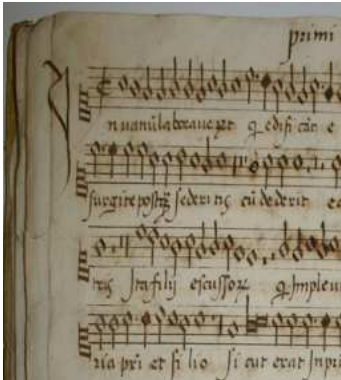 primi
n vanũ laboraverũt q̃ edificãt e
surgite postq̃ sederitis cũ dederit
tus Ita filij excussorꝝ q̃ Implevi
ria pr̃i et filio sicut erat In pri